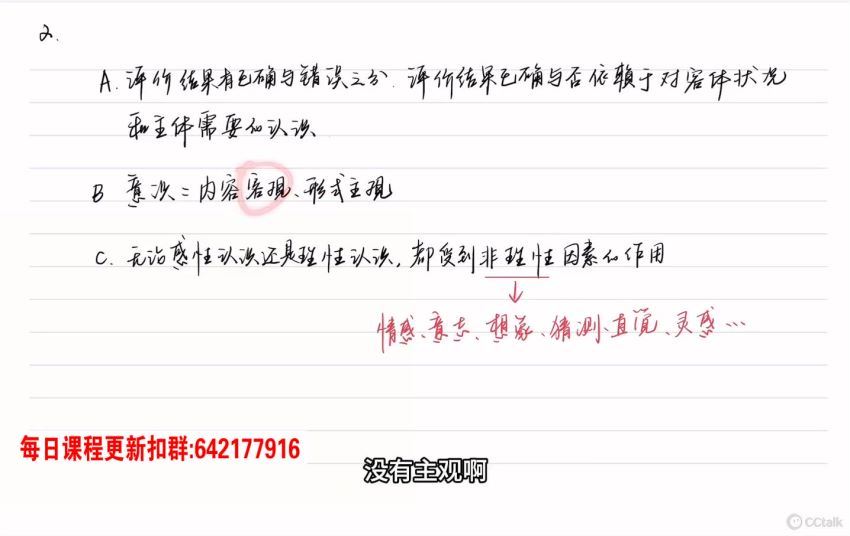 2.
A. 评价结果有正确与错误之分. 评价结果正确与否依赖于对客体状况
和主体需要的认识
B 意识=内容客观、形式主观
C. 无论感性认识还是理性认识, 都受到非理性因素的作用
情感、意志、想象、猜测、直觉、灵感…
每日课程更新扣群:642177916
没有主观啊
CCtalk